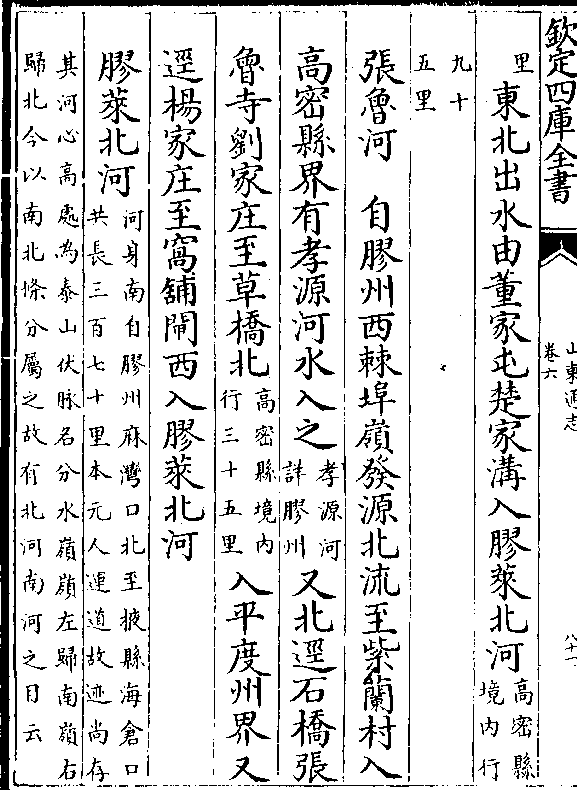 欽定四庫全書
山東通志
卷六
里
東北出水由董家屯楚家溝入膠萊北河
高密縣
境內行
九十
五里
張魯河　自膠州西棘埠嶺發源北流至紫蘭村入
高密縣界有孝源河水入之
孝源河
詳膠州
又北逕石橋張
魯寺劉家庄至草橋北
高密縣境內
行三十五里
入平度州界又
逕楊家庄至窩舖閘西入膠萊北河
膠萊北河
河身南自膠州麻灣口北至掖縣海倉口
共長三百七十里本元人運道故迹尚存
其河心高處為泰山伏脉名分水嶺嶺左歸南嶺右
歸北今以南北條分屬之故有北河南河之目云